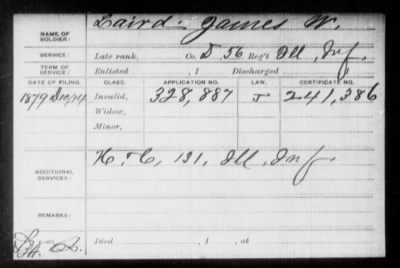 NAME OF SOLDIER: Laird, James W.
SERVICE: Late rank, Co. D, 56 Reg't Ill. Inf.
TERM OF SERVICE: Enlisted , 1 Discharged
DATE OF FILING. CLASS. APPLICATION NO. LAW. CERTIFICATE NO.
1879 Invalid, 328,887 J 241,386
Widow,
Minor,
ADDITIONAL SERVICES: H. & C, 131, Ill. Inf.
REMARKS:
Died , 1 , at